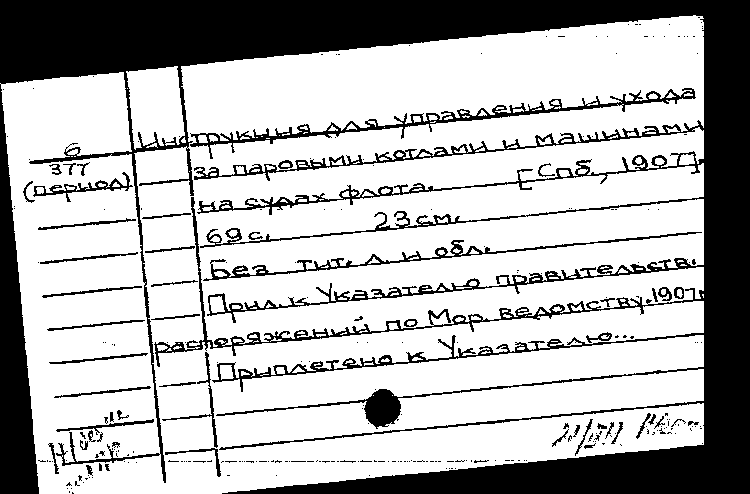 6
377
(период)
Инструкция для управления и ухода
за паровыми котлами и машинами
на судах флота. [Спб., 1907].
69 с. 23 см.
Без тит. л. и обл.
Прил. к Указателю правительств.
распоряжений по Мор. ведомству. 1907г
Приплетено к Указателю...